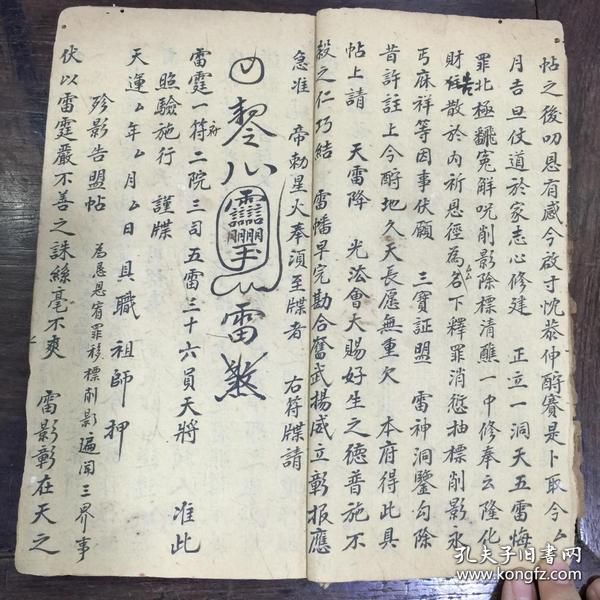 帖之後叨恩有感今啟寸忱恭伸酧賽是卜取今厶
月吉旦仗道於家志心修建 正立一洞天五雷悔
罪北極翻寃解呪削影除標清醮一中修奉云隆化
財告散於內祈恩徑為厶名下釋罪消愆抽標削影永
丐庥祥等因事伏願 三寶証盟 雷神洞鑒勾除
昔許註上今酧地久天長愿無重欠 本府得此具
帖上請 天雷降 光法會大賜好生之德普施不
殺之仁巧結 雷幡早完勘合奮武揚威立彰报應
急准 帝勅星火奉須至牒者 右符牒請
雷
雷霆一府符二院三司五雷三十六員天將 准此
照驗施行 謹牒
天運厶年厶月厶日具職 祖師 押
殄影告盟帖 為恳恩宥罪移標削影遍聞三界事
伏以雷霆嚴不善之誅絲毫不爽 雷影彰在天之
孔夫子旧書网
www.kongfz.com